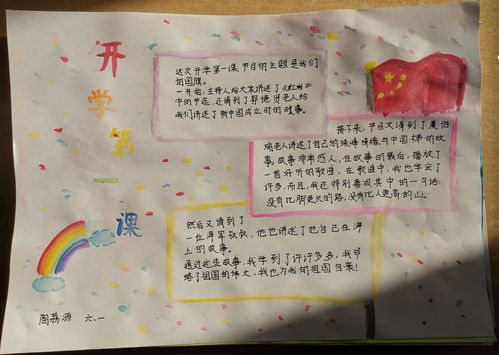 开
学
第
一
课
这次开学第一课节目的主题是我们
的国旗。
一开始,主持人给大家讲述了《红岩》
中的节选,还请到了郭德贤老人给
我们讲述了新中国成立时的故事。
接下来,节目又请到了夏伯
渝老人讲述了自己的珠峰情缘与中国梯的故
事,故事非常感人,在故事的最后,播放了
一首好听的歌曲,在歌曲中,我也学会了
许多,而且,我还特别喜欢其中的一句话:
没有比脚更长的路,没有比人更高的山。
然后又请到了
一位海军叔叔,他也讲述了他自己在海
上的故事。
通过这些故事,我学到了许许多多,我领
略了祖国的伟大,我也为我的祖国自豪!
六.一